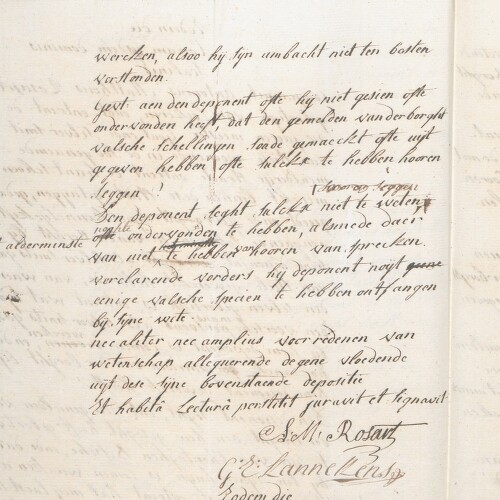 wercken, alsoo hij sijn ambacht niet ten besten
verstonden.
Gevr. aen den deponent ofte hij niet gesien ofte
ondervonden heeft, dat den gemelden vanderborght
valsche schellingen soude gemaeckt ofte uijt
gegeven hebben ofte sulckx te hebben hooren
seggen?
hooren seggen
Den deponent seght sulckx niet te weten,
nochte ofte ondervonden te hebben, alsmede daer
alderminste
van niet te hebben hooren van spreken.
verclarende vorders hij deponent noijt geene
eenige valsche specien te hebben ontfangen
bij sijne wete
nec aliter nec amplius voor redenen van
wetenschap alleguerende degene vloedende
uijt dese sijne bovenstaende depositie
Et habitâ lecturâ perstitit juravit et signavit
A: M: Rosart
G: E: Lannekens
Eodem die